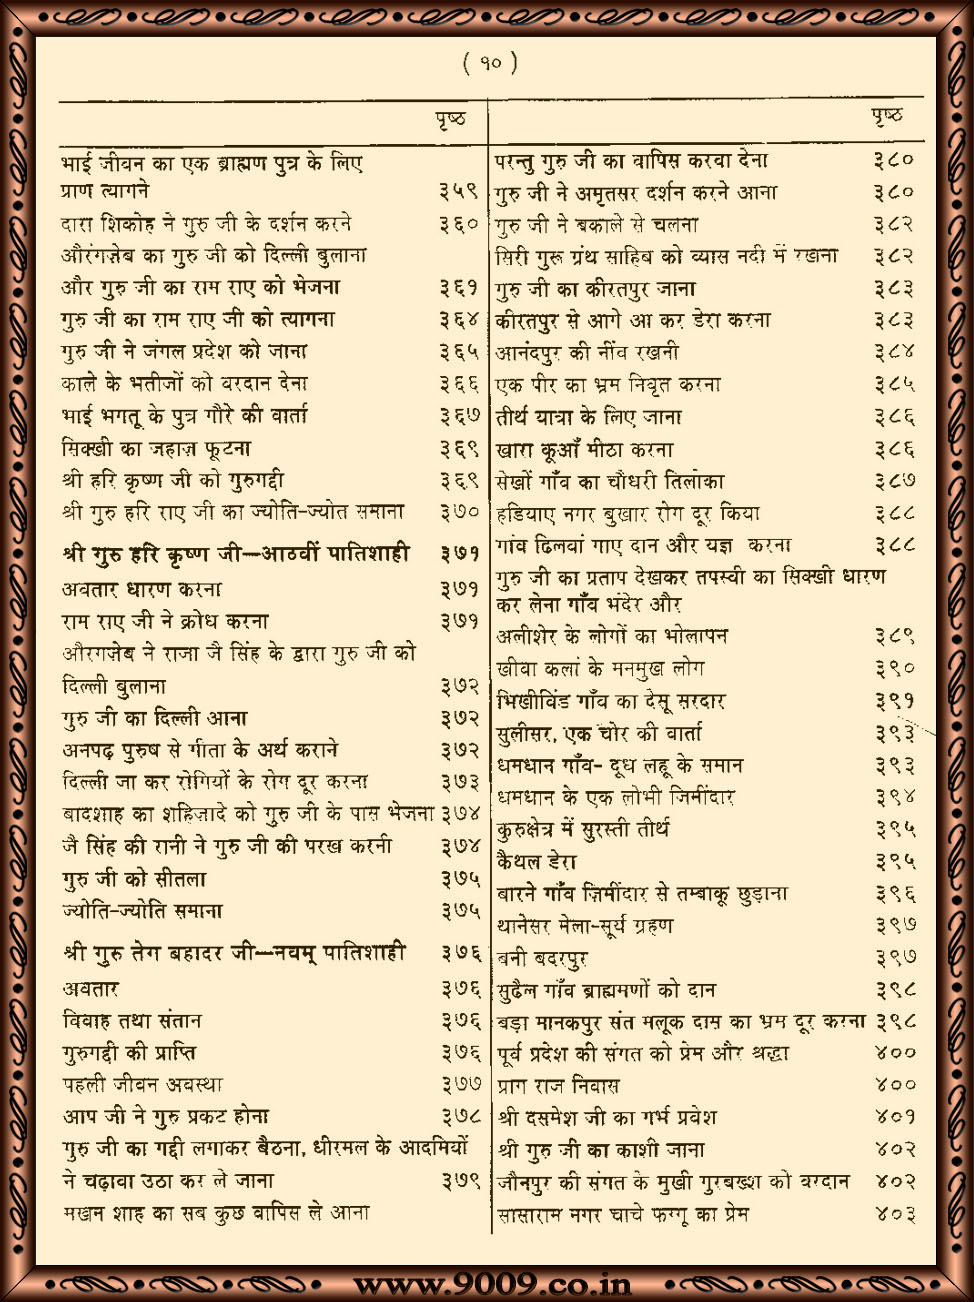 ( १० )
पृष्ठ
भाई जीवन का एक ब्राह्मण पुत्र के लिए
प्राण त्यागने ३५९
दारा शिकोह ने गुरु जी के दर्शन करने ३६०
औरंगज़ेब का गुरु जी को दिल्ली बुलाना
और गुरु जी का राम राए को भेजना ३६१
गुरु जी का राम राए जी को त्यागना ३६४
गुरु जी ने जंगल प्रदेश को जाना ३६५
काले के भतीजों को वरदान देना ३६६
भाई भगतू के पुत्र गौरे की वार्ता ३६७
सिक्खी का जहाज़ फूटना ३६९
श्री हरि कृष्ण जी को गुरुगद्दी ३६९
श्री गुरु हरि राए जी का ज्योति-ज्योत समाना ३७०
श्री गुरु हरि कृष्ण जी—आठवीं पातिशाही ३७१
अवतार धारण करना ३७१
राम राए जी ने क्रोध करना ३७१
औरगज़ेब ने राजा जै सिंह के द्वारा गुरु जी को
दिल्ली बुलाना ३७२
गुरु जी का दिल्ली आना ३७२
अनपढ़ पुरुष से गीता के अर्थ कराने ३७२
दिल्ली जा कर रोगियों के रोग दूर करना ३७३
बादशाह का शहिज़ादे को गुरु जी के पास भेजना ३७४
जै सिंह की रानी ने गुरु जी की परख करनी ३७४
गुरु जी को सीतला ३७५
ज्योति-ज्योति समाना ३७५
श्री गुरु तेग बहादर जी—नवम् पातिशाही ३७६
अवतार ३७६
विवाह तथा संतान ३७६
गुरुगद्दी की प्राप्ति ३७६
पहली जीवन अवस्था ३७७
आप जी ने गुरु प्रकट होना ३७८
गुरु जी का गद्दी लगाकर बैठना, धीरमल के आदमियों
ने चढ़ावा उठा कर ले जाना ३७९
मखन शाह का सब कुछ वापिस ले आना
पृष्ठ
परन्तु गुरु जी का वापिस करवा देना ३८०
गुरु जी ने अमृतसर दर्शन करने आना ३८०
गुरु जी ने बकाले से चलना ३८२
सिरी गुरू ग्रंथ साहिब को व्यास नदी में रखना ३८२
गुरु जी का कीरतपुर जाना ३८३
कीरतपुर से आगे आ कर डेरा करना ३८३
आनंदपुर की नींव रखनी ३८४
एक पीर का भ्रम निवृत करना ३८५
तीर्थ यात्रा के लिए जाना ३८६
खारा कूआँ मीठा करना ३८६
सेखों गाँव का चौधरी तिलोका ३८७
हडियाए नगर बुखार रोग दूर किया ३८८
गांव ढिलवां गाए दान और यज्ञ करना ३८८
गुरु जी का प्रताप देखकर तपस्वी का सिक्खी धारण
कर लेना गाँव भंदेर और
अलीशेर के लोगों का भोलापन ३८९
खीवा कलां के मनमुख लोग ३९०
भिखीविंड गाँव का देसू सरदार ३९१
सुलीसर, एक चोर की वार्ता ३९३
धमधान गाँव- दूध लहू के समान ३९३
धमधान के एक लोभी जिमींदार ३९४
कुरुक्षेत्र में सुरस्ती तीर्थ ३९५
कैथल डेरा ३९५
बारने गाँव ज़िमींदार से तम्बाकू छुड़ाना ३९६
थानेसर मेला-सूर्य ग्रहण ३९७
बनी बदरपुर ३९७
सुढैल गाँव ब्राह्मणों को दान ३९८
बड़ा मानकपुर संत मलूक दास का भ्रम दूर करना ३९८
पूर्व प्रदेश की संगत को प्रेम और श्रद्धा ४००
प्राग राज निवास ४००
श्री दसमेश जी का गर्भ प्रवेश ४०१
श्री गुरु जी का काशी जाना ४०२
जौनपुर की संगत के मुखी गुरबख्श को वरदान ४०२
सासाराम नगर चाचे फग्गू का प्रेम ४०३
www.9009.co.in